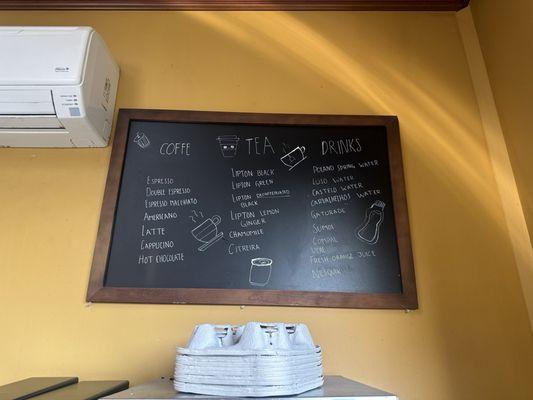 COFFE
ESPRESSO
DOUBLE ESPRESSO
ESPRESSO MACHIATO
AMERICANO
LATTE
CAPPUCINO
HOT CHOCOLATE
TEA
LIPTON BLACK
LIPTON GREEN
LIPTON DECAFFEINATED
BLACK
LIPTON LEMON
GINGER
CHAMOMILE
CITREIRA
DRINKS
POLAND SPRING WATER
LUSO WATER
CASTELO WATER
CARVALHELHOS WATER
GATORADE
SUMOL
COMPAL
FRESH ORANGE JUICE
NESQUIK